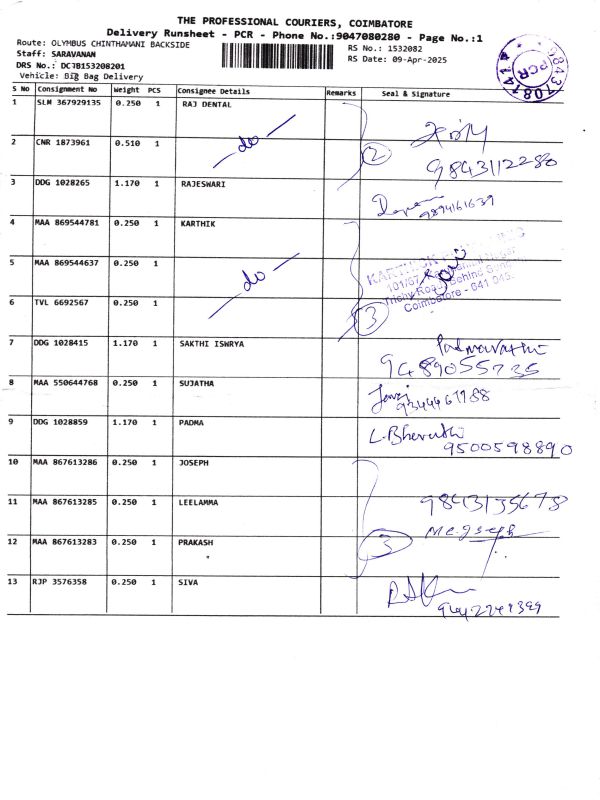 THE PROFESSIONAL COURIERS, COIMBATORE
Delivery Runsheet - PCR - Phone No.:9047080280 - Page No.:1
Route: OLYMBUS CHINTHAMANI BACKSIDE
Staff: SARAVANAN
DRS No.: DC7B153208201
Vehicle: Big Bag Delivery
RS No.: 1532082
RS Date: 09-Apr-2025
PCR
S No Consignment No Weight PCS Consignee Details Remarks Seal & Signature
1 SLM 367929135 0.250 1 RAJ DENTAL
2 CNR 1873961 0.510 1 -do- 2 9843112280
3 DDG 1028265 1.170 1 RAJESWARI 9894161639
4 MAA 869544781 0.250 1 KARTHIK
5 MAA 869544637 0.250 1 -do-
6 TVL 6692567 0.250 1 3
Coimbatore - 641 045.
7 DDG 1028415 1.170 1 SAKTHI ISWRYA Padmavathi
9489055735
8 MAA 550644768 0.250 1 SUJATHA 9344461988
9 DDG 1028859 1.170 1 PADMA L.Bharathi
9500598890
10 MAA 867613286 0.250 1 JOSEPH
11 MAA 867613285 0.250 1 LEELAMMA 9843135678
12 MAA 867613283 0.250 1 PRAKASH 3
13 RJP 3576358 0.250 1 SIVA